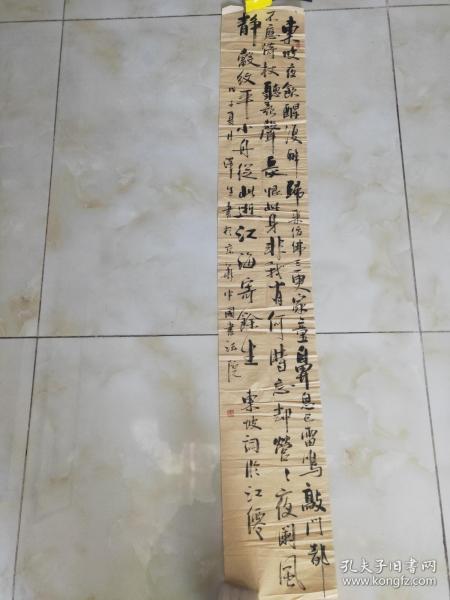 東坡夜飲醒復醉歸來仿佛三更家童鼻息已雷鳴敲門都
不應倚杖聽江聲長恨此身非我有何時忘却營々夜闌風
靜縠紋平小舟從此逝江海寄餘生 東坡詞臨江僊
戊子夏月澤生書於京華中國書法院
孔夫子旧书网
www.kongfz.com